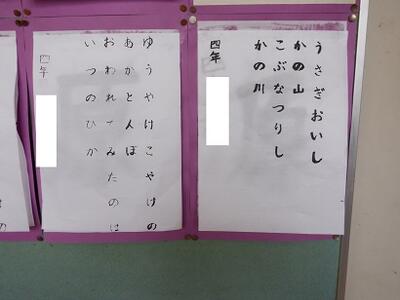 うさぎおいし
かの山
こぶなつりし
かの川
四年
ゆうやけこやけの
あかとんぼ
おわれてみたのは
いつのひか
四年